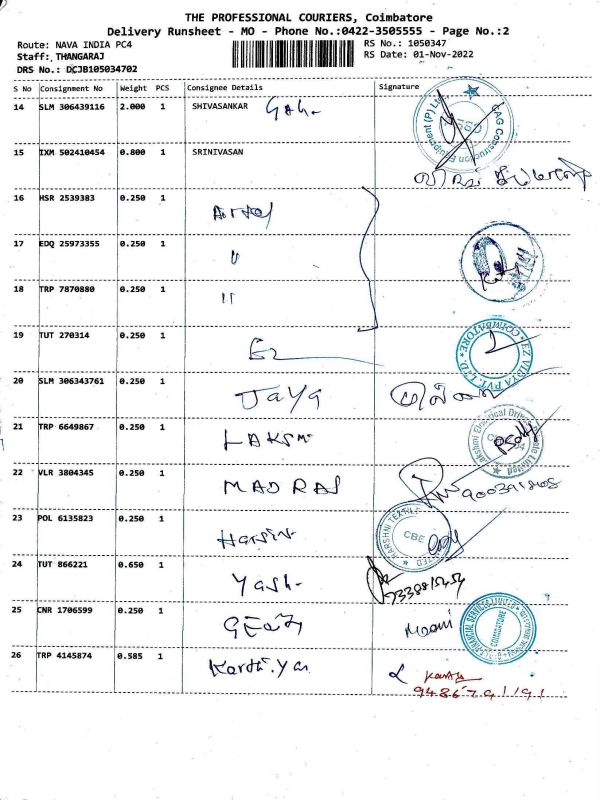 THE PROFESSIONAL COURIERS, Coimbatore
Delivery Runsheet - MO - Phone No.:0422-3505555 - Page No.:2
Route: NAVA INDIA PC4
RS No.: 1050347
Staff: THANGARAJ
RS Date: 01-Nov-2022
DRS No.: DCJB105034702
S No Consignment No Weight PCS Consignee Details Signature
14 SLM 306439116 2.000 1 SHIVASANKAR
15 IXM 502410454 0.800 1 SRINIVASAN
16 HSR 2539383 0.250 1
17 EDQ 25973355 0.250 1 "
18 TRP 7870880 0.250 1 "
19 TUT 270314 0.250 1 Ez
EZ VIDYA PVT. LTD COIMBATORE
20 SLM 306343761 0.250 1 Jaya
21 TRP 6649867 0.250 1 LAKSMI
22 VLR 3804345 0.250 1 MADRAS
23 POL 6135823 0.250 1 Harsin
HARSHNI TEXTILES LIMITED CBE
24 TUT 866221 0.650 1 Yash
25 CNR 1706599 0.250 1 Mooni
COIMBATORE
26 TRP 4145874 0.585 1 Karthi.yan
9486791191